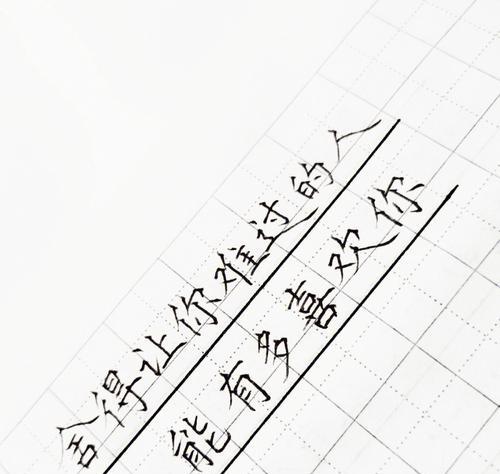 舍得让你难过的人
能有多喜欢你